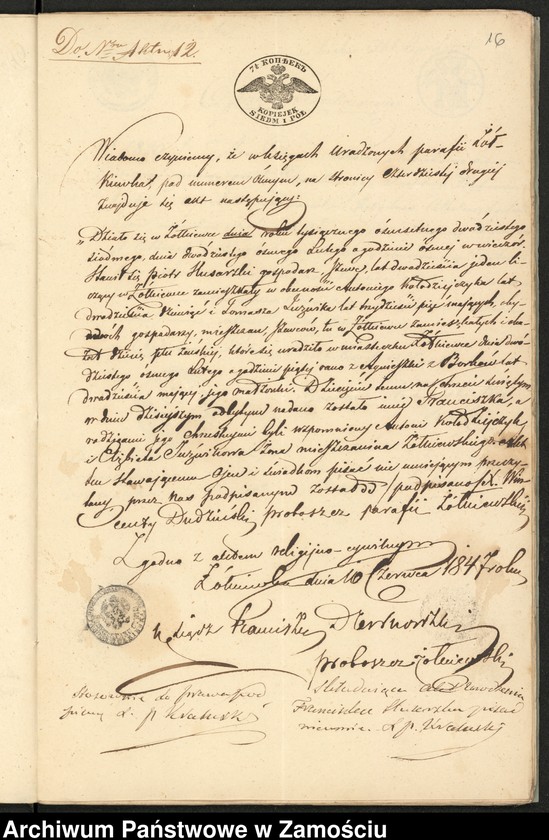 Do Nru Aktu 12.
16
7½ КОПѢЕКЪ
KOPIEJEK
SIEDM I PÓŁ
Wiadomo czyniemy, że w księgach Urodzonych parafii Żół-
kiewka, pod numerem ósmym, na stronicy czterdziestej drugiej
znajduje się akt następujący:
„Działo się w Żółkiewce dnia roku tysiącznego ośmsetnego dwudziestego
siódmego, dnia dwudziestego ósmego Lutego o godzinie ósmej w wieczór.
Stawił się Piotr Husarzki gospodarz, Szewc, lat dwadzieścia jeden li-
czący w Żółkiewce zamieszkały w obecności Antoniego Kołodziejczyka lat
dwadzieścia dziewięć i Tomasza lat trzydzieści pięć mających, oby-
dwóch gospodarzy, mieszczan, Szewców, tu w Żółkiewce zamieszkałych i oka-
zał dziecię płci żeńskiej, które się urodziło w miasteczku Żółkiewce dnia dwu-
dziestego ósmego Lutego o godzinie piątej rano z Agnieszki z Borków lat
dwadzieścia mającej jego małżonki. Dziecięciu temu na chrzcie świętym
w dniu dzisiejszym odbytym nadane zostało imię Franciszka, a
rodzicami jego chrzestnymi byli wspomniony Antoni Kołodziejczyk
i Elżbieta żona mieszczanina Żółkiewskiego. Akt
ten stawającemu Ojcu i świadkom pisać nie umiejącym przeczy-
tany przez nas podpisanym został /podpisano/ X. Win-
centy Dudziński proboszcz parafii Żółkiewskiej
Zgodno z aktem religijno-cywilnym
Żółkiewka dnia 10 Czerwca 1847 roku
Ksiądz Franciszek
proboszcz Żółkiewski
Stosownie do prawa pod
pisany
Franciszka pisać
nieumie.
Archiwum Państwowe w Zamościu